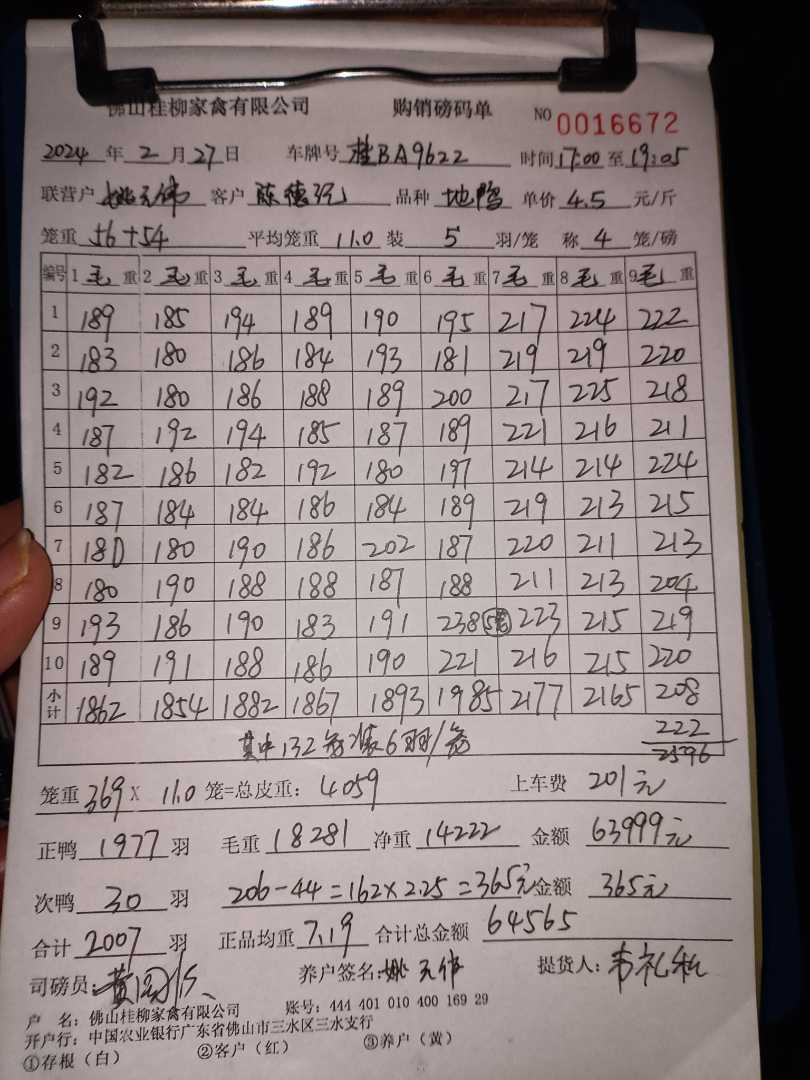 佛山桂柳家禽有限公司 购销磅码单 NO 0016672
2024年2月27日 车牌号 桂BA9622 时间17:00至19:05
联营户 姚元伟 客户 陈德 品种 地鸭 单价 4.5 元/斤
笼重 56+54 平均笼重 11.0 装 5 羽/笼 称 4 笼/磅
编号 1毛重 2毛重 3毛重 4毛重 5毛重 6毛重 7毛重 8毛重 9毛重
1 189 185 194 189 190 195 217 224 222
2 183 180 186 184 193 181 219 219 220
3 192 180 186 188 189 200 217 225 218
4 187 192 194 185 187 189 221 216 211
5 182 186 182 192 180 197 214 214 224
6 187 184 184 186 184 189 219 213 215
7 180 180 190 186 202 187 220 211 213
8 180 190 188 188 187 188 211 213 204
9 193 186 190 183 191 238 5笼 223 215 219
10 189 191 188 186 190 221 216 215 220
小计 1862 1854 1882 1867 1893 1985 2177 2165 208
其中132笼装6羽/笼 222
2596
笼重 369 X 11.0 笼=总皮重: 4059 上车费 201元
正鸭 1977 羽 毛重 18281 净重 14222 金额 63999元
次鸭 30 羽 206-44=162×2.25=365元 金额 365元
合计 2007 羽 正品均重 7.19 合计总金额 64565
司磅员: 黄 养户签名: 姚元伟 提货人: 韦礼
户 名: 佛山桂柳家禽有限公司 账号: 444 401 010 400 169 29
开户行: 中国农业银行广东省佛山市三水区三水支行
①存根(白) ②客户(红) ③养户(黄)